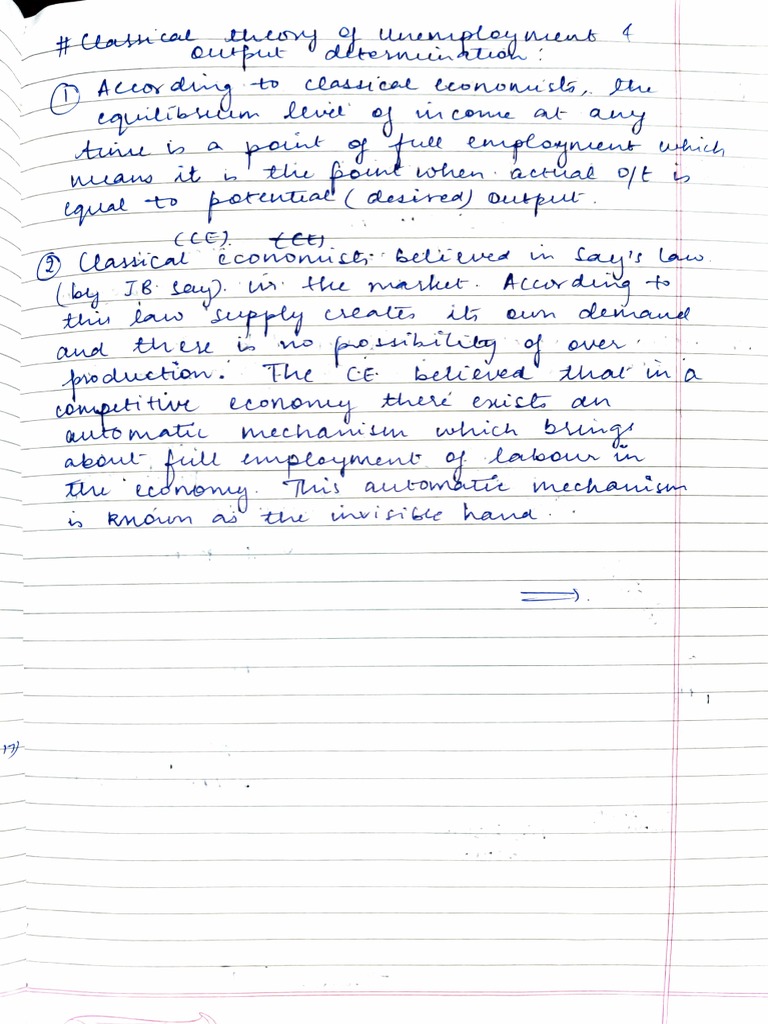 # Classical theory of Unemployment &
output determination :
① According to classical economists, the
equilibrium level of income at any
time is a point of full employment which
means it is the point when actual o/t is
equal to potential (desired) output.
(CE). (CE)
② Classical economists believed in Say's law
(by J.B. Say). in the market. According to
this law supply creates its own demand
and there is no possibility of over
production. The CE believed that in a
competitive economy there exists an
automatic mechanism which brings
about full employment of labour in
the economy. This automatic mechanism
is known as the invisible hand.